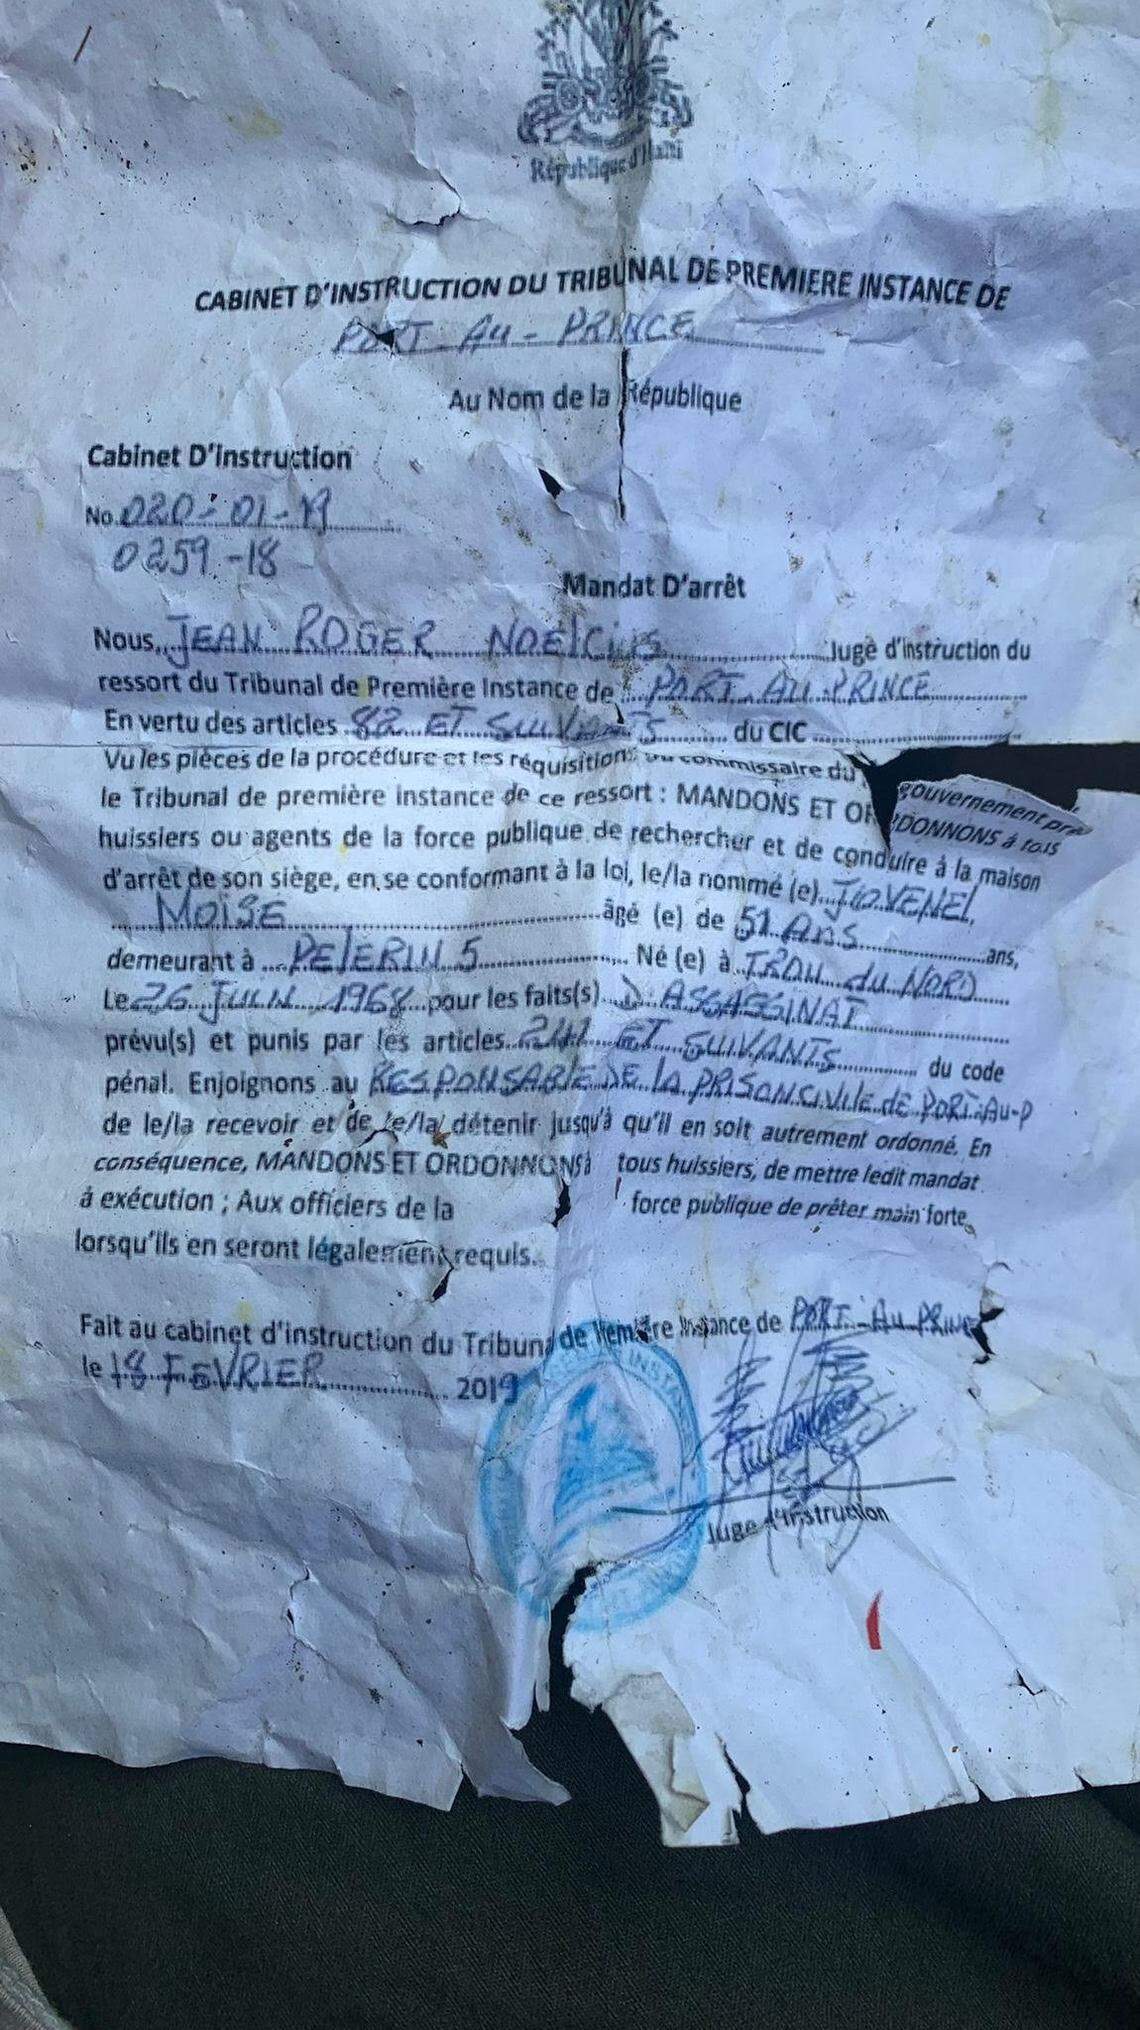 République d'Haïti
CABINET D'INSTRUCTION DU TRIBUNAL DE PREMIERE INSTANCE DE
PORT-AU-PRINCE
Au Nom de la République
Cabinet D'instruction
No. 020-01-19
0259-18
Mandat D'arrêt
Nous, JEAN ROGER NOElCiUS Juge d'instruction du
ressort du Tribunal de Première Instance de PORT AU PRINCE
En vertu des articles 82 ET SUIVANTS du CIC
Vu les pièces de la procédure et les réquisitions du commissaire du gouvernement près
le Tribunal de première instance de ce ressort : MANDONS ET ORDONNONS à tous
huissiers ou agents de la force publique de rechercher et de conduire à la maison
d'arrêt de son siège, en se conformant à la loi, le/la nommé (e) JOVENEL
MOISE âgé (e) de 51 Ans ans,
demeurant à PELERIN 5 Né (e) à TROU du NORD
Le 26 JUIN 1968 pour les faits(s) D'ASSASSINAT
prévu(s) et punis par les articles 241 ET SUIVANTS du code
pénal. Enjoignons au RESPONSABLE DE LA PRISON CIVILE de PORT-AU-P
de le/la recevoir et de le/la détenir jusqu'à qu'il en soit autrement ordonné. En
conséquence, MANDONS ET ORDONNONS à tous huissiers, de mettre ledit mandat
à exécution ; Aux officiers de la force publique de prêter main forte,
lorsqu'ils en seront légalement requis.
Fait au cabinet d'instruction du Tribunal de Première Instance de PORT-AU PRINCE
le 18 FEVRIER 2019
Juge d'Instruction